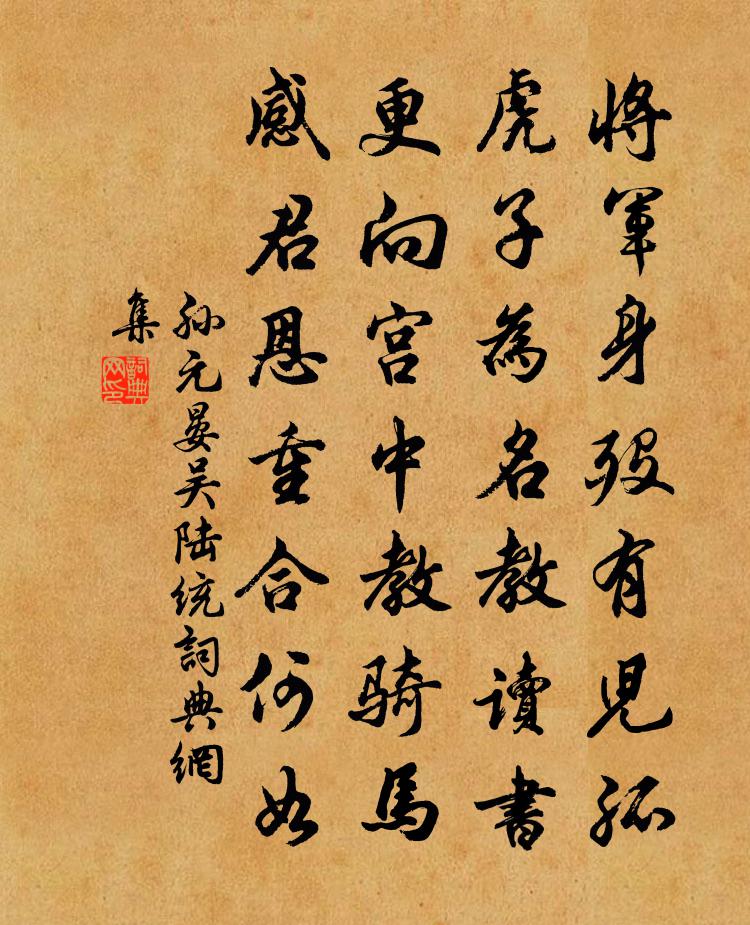 將軍身歿有兒孤
虎子為名教讀書
更向宮中教騎馬
感君恩重合何如
孙元晏吴陆统詞典網
集
詞典
网印